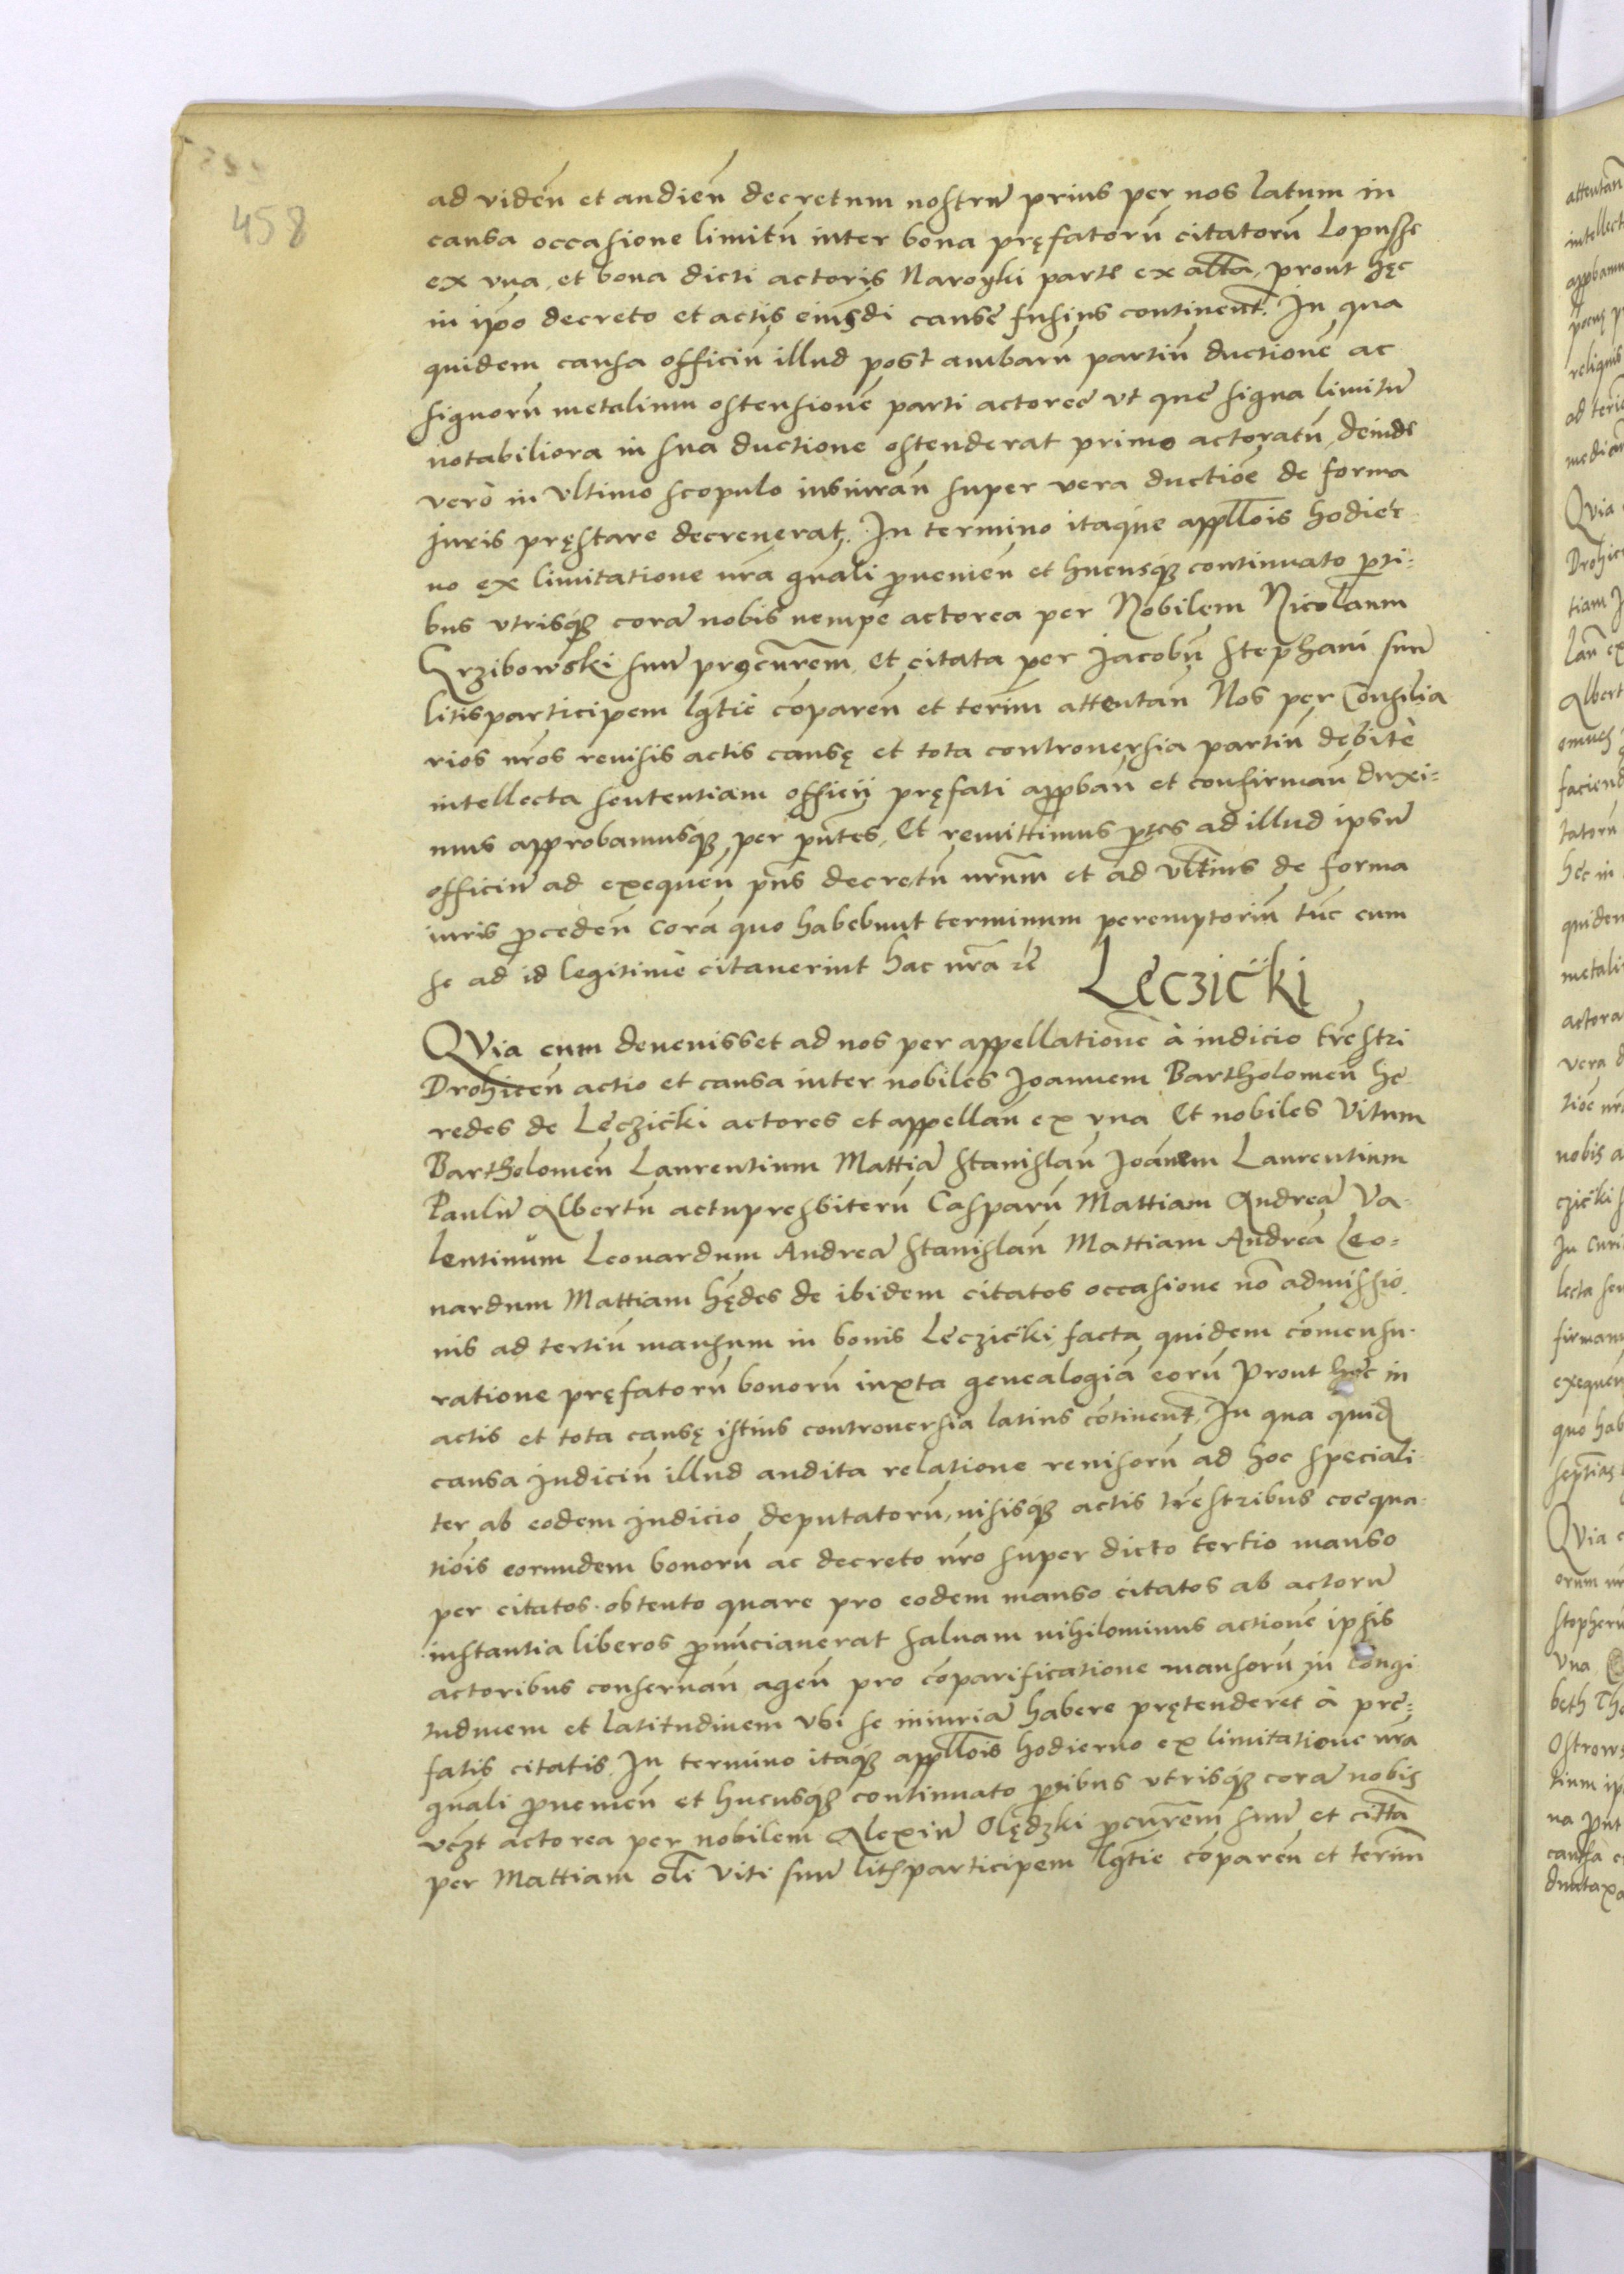 458
ad videñ et audieñ decretum nostrũ prius per nos latum in
causa occasione limitũ inter bona pręfatorũ citatorũ Lopusse
ex vna, et bona dicti actoris Naroyki parte ex altĩa, prout hęc
in ip̃o decreto et actis eiusdĩ cause fusius continent̃. In qua
quidem causa officiũ illud post ambarũ partiũ ductionẽ ac
signorũ metalium ostensionẽ parti actoree vt quę signa limitũ
notabiliora in sua ductione ostenderat primo actoratũ, deinde
verò in vltimo scopulo iusiurañ super vera ductiõe de forma
juris pręstare decreuerat. In termino itaque appll̃ois hodier
no ex limitatione nr̃a gñali p̃uenieñ et hucusq̃ continuato p̃ti-
bus vtrisq̃ corã nobis nempe actorea per Nobilem Nicolaum
Grzibowski suũ procur̃em, et citata per Jacobũ Stephani suũ
litisparticipem lg̃tie cõpareñ et term̃ attentañ Nos per Consilia
rios nr̃os reuisis actis causę et tota controuersia partiũ debite
intellecta sententiam officij pręfati app̃bañ et confirmañ duxi-
mus approbamusq̃ per p̃ntes, Et remittimus p̃tes ad illud ipsũ
officiũ ad exequeñ p̃ns decretũ nr̃um et ad vlt̃ius de forma
iuris p̃cedeñ corã quo habebunt terminum peremptoriũ tũc cum
se ad id legitimè citauerint hac nr̃a rẽ
Leczićki
QVia cum deuenisset ad nos per appellationẽ à iudicio tr̃estri
Drohiceñ actio et causa inter nobiles Joannem Bartholomeũ he
redes de Leczićki actores et appellañ ex vna Et nobiles Vitum
Bartholomeũ Laurentium Mattiã Stanislaũ Joãnem Laurentium
Paulũ Albertũ actupresbiterũ Casparũ Mattiam Andreã Va
lentinum Leonardum Andreã Stanislaũ Mattiam Andreã Leo-
nardum Mattiam hẽdes de ibidem citatos occasione nõ admissio
nis ad tertiũ mansum in bonis Leczićki, facta quidem cõmensu
ratione pręfatorũ bonorũ iuxta genealogiã eorũ Prout hec in
actis et tota causę istius controuersia latius cõtinent̃, In qua quid̃
causa judiciũ illud audita relatione reuisorũ ad hoc speciali
ter ab eodem judicio deputatorũ, visisq̃ actis tr̃estribus coequa
tiõis eorundem bonorũ ac decreto nr̃o super dicto tertio manso
per citatos obtento quare pro eodem manso citatos ab actorũ
instantia liberos p̃nũciauerat saluam nihilominus actionẽ ipsis
actoribus conseruañ, ageñ pro cõparificatione mansorũ in longi
tudinem et latitudinem vbi se iniuriã habere prętenderet à prę-
fatis citatis, In termino itaq̃ appll̃ois hodierno ex limitatione nr̃a
gñali p̃uenieñ et hucusq̃ continuato p̃tibus vtrisq̃ corã nobis
vczt actorea per nobilem Alexiũ Olędzki p̃cur̃em suũ et citt̃a
per Mattiam oli Viti suũ litisparticipem lg̃tie cõpareñ et term̃